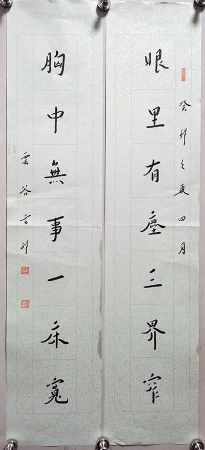 癸卯之夏四月
眼里有塵三界窄
胸中無事一床寬
雲谷